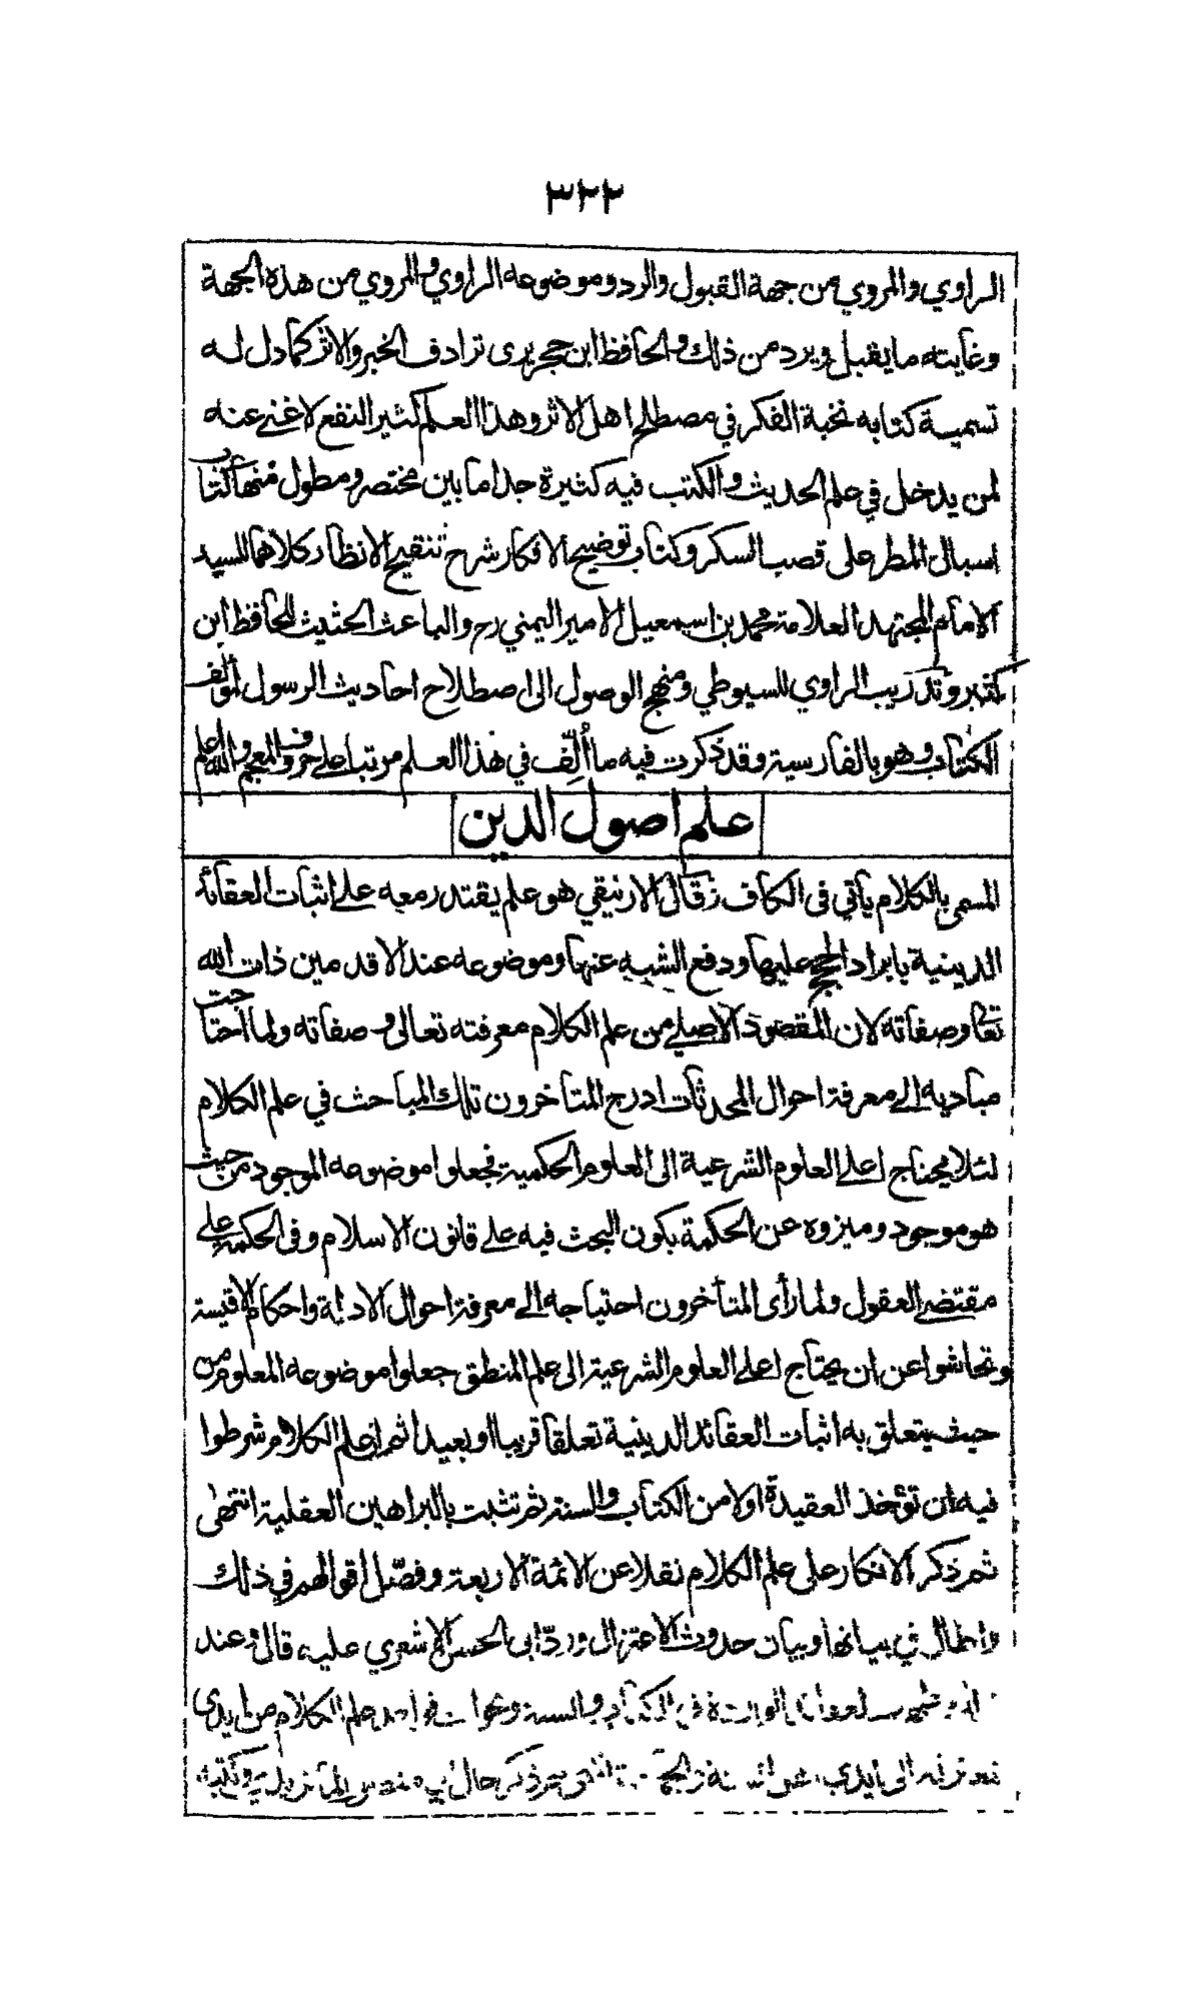 ٣٢٢
الراوي والمروي من جهة القبول والرد وموضوعه الراوي والمروي من هذه الجهة
وغايته ما يقبل ويرد من ذلك والحافظ ابن حجر يرى ترادف الخبر والاثر كما دل له
تسمية كتابه نخبة الفكر في مصطلح اهل الاثر وهذا العلم كثير النفع لا غنى عنه
لمن يدخل في علم الحديث والكتب فيه كثيرة جدا ما بين مختصر ومطول منها كتاب
اسبال المطر على قصب السكر وكتاب توضيح الافكار شرح تنقيح الانظار كلاهما للسيد
الامام المجتهد العلامة محمد بن اسمعيل الامير اليمني رح والباعث الحثيث للحافظ ابن
كثير وتدريب الراوي للسيوطي ومنهج الوصول الى اصطلاح احاديث الرسول لمؤلف
الكتاب وهو بالفارسية وقد ذكرت فيه ما أُلِّف في هذا العلم مرتبا على حروف المعجم والله اعلم
علم اصول الدين
المسمى بالكلام يأتي فى الكاف قال الارنيقي هو علم يقتدر معه على اثبات العقائد
الدينية بايراد الحجج عليها ودفع الشبه عنها وموضوعه عند الاقدمين ذات الله
تعالى وصفاته لان المقصود الاصلي من علم الكلام معرفته تعالى وصفاته ولما احتاجت
مباديه الى معرفة احوال المحدثات ادرج المتأخرون تلك المباحث في علم الكلام
لئلا يحتاج اعلى العلوم الشرعية الى العلوم الحكمية فجعلوا موضوعه الموجود من حيث
هو موجود وميزوه عن الحكمة بكون البحث فيه على قانون الاسلام وفى الحكمة على
مقتضى العقول ولما رأى المتأخرون احتياجه الى معرفة احوال الادلة واحكام الاقيسة
وتحاشوا عن ان يحتاج اعلى العلوم الشرعية الى علم المنطق جعلوا موضوعه المعلوم من
حيث يتعلق به اثبات العقائد الدينية تعلقا قريبا او بعيدا ثم ان علم الكلام شرطوا
فيه ان تؤخذ العقيدة اولا من الكتاب والسنة ثم تثبت بالبراهين العقلية انتهى
ثم ذكر الانكار على علم الكلام نقلا عن الائمة الاربعة وفصّل اقوالهم في ذلك
واطال في بيانها وبيان حدوث الاعتزال وردّ ابى الحسن الاشعري عليه قال وعند
الواردة في الكتاب والسنة علم الكلام من ايدي
الى ايدي ثم ذكر حال